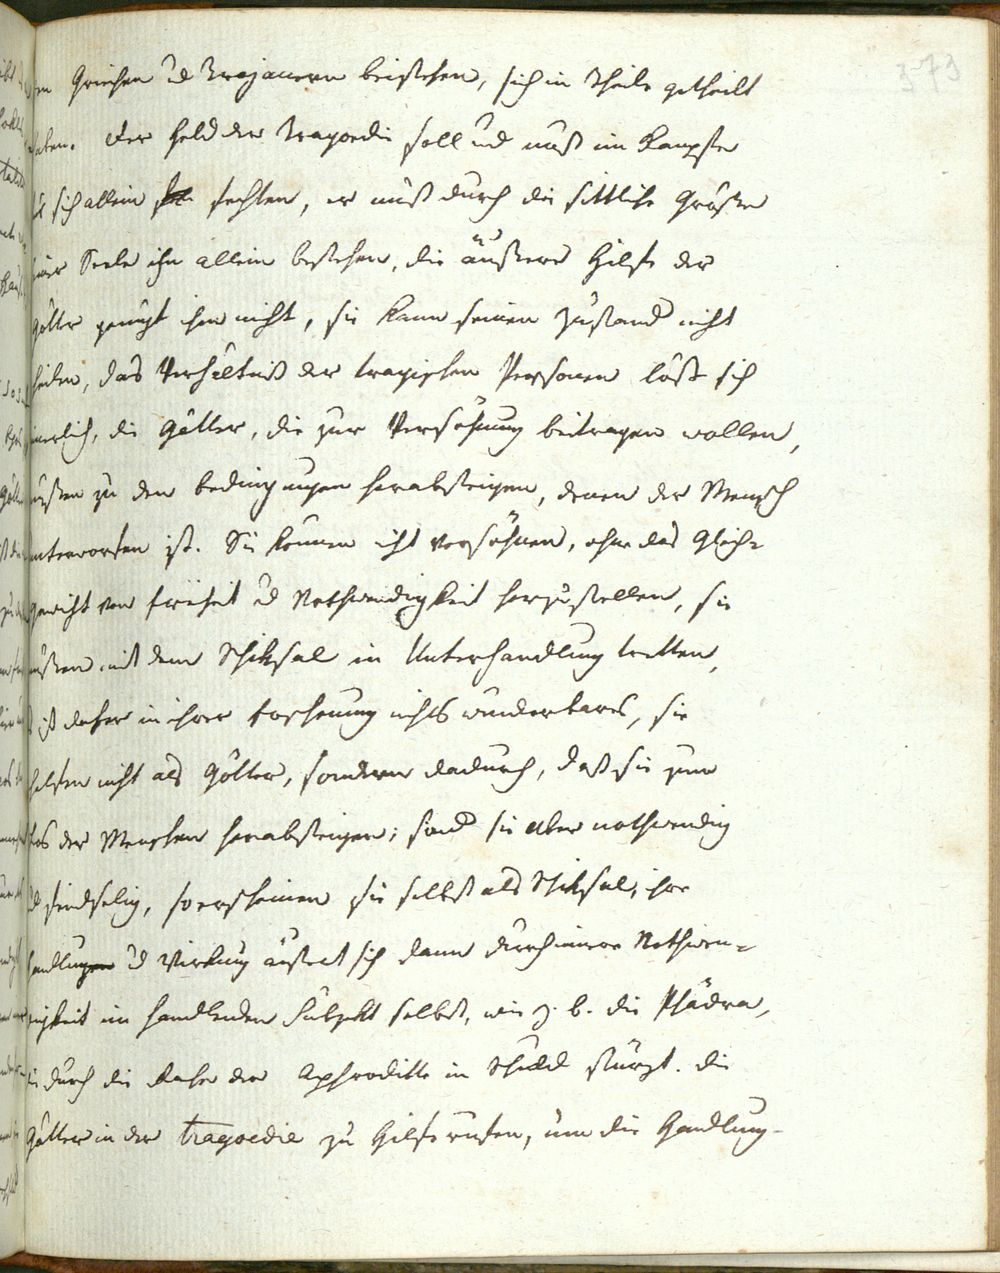 373
en Griechen u Trojanern beistehen, sich in Theile getheilt
haben. der Held der Tragoedie soll und muß im Kampfe
für sich allein fechten, er muß durch die sittliche Größe
seiner Seele ihn allein bestehen, die äußere Hilfe der
Götter genügt ihm nicht, sie kann seinen Zustand nicht
heilen, das Verhältniß der tragischen Personen löst sich
innerlich, die Götter, die zur Versöhnung beitragen wollen,
müßen zu den bedingungen herabsteigen, denen der Mensch
unterworfen ist. Sie können nicht versöhnen, ohne das Gleich-
gewicht von freiheit u Nothwendigkeit herzustellen, sie
müßen mit dem Schiksal in Unterhandlung tretten,
es ist daher in ihrer Erscheinung nichts wunderbares, sie
helfen nicht als Götter, sondern dadurch, daß sie zum
Loos der Menschen herabsteigen; sind sie aber nothwendig
u feindselig, so erscheinen sie selbst als Schiksal, ihre
Handlungen u Wirkung äußert sich dann durch innere Nothwen-
digkeit im handlenden Subjekt selbst, wie z. b. die Phädra,
die durch die Rache der Aphroditte in Schuld stürzt. die
Götter in der tragoedie zu Hilfe rufen, um die Handlung